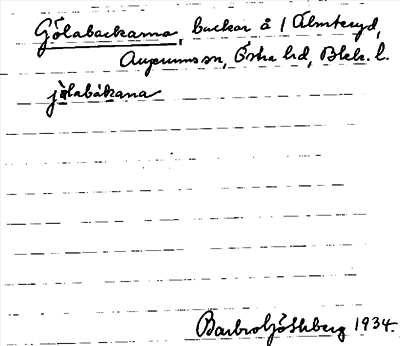 Gölabackarna, backar å 1 Älmteryd,
Augerums sn, Östra hd, Blek. l.
jö̀labàkana
Barbro Göthberg 1934.